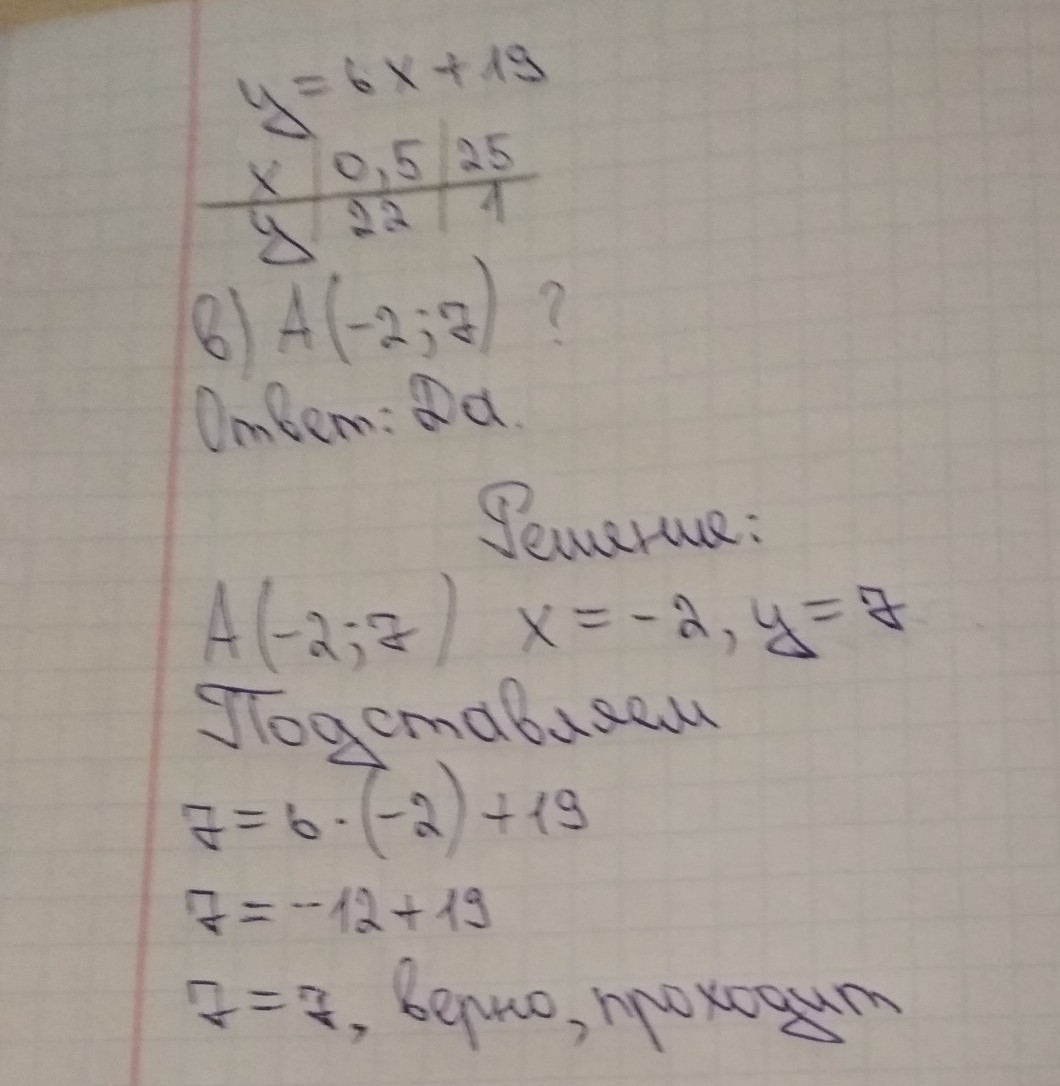 y = 6x + 19
x | 0,5 | 25
y | 22 | 1
в) А(-2; 7) ?
Ответ: Да.
Решение:
А(-2; 7) x = -2, y = 7
Подставляем
7 = 6 · (-2) + 19
7 = -12 + 19
7 = 7, верно, проходит